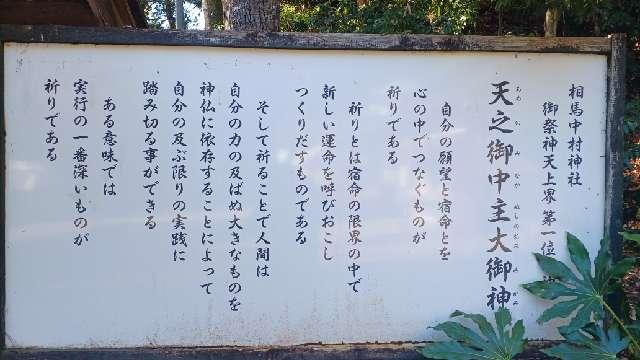 相馬中村神社
御祭神天上界第一位
天之御中主大御神
自分の願望と宿命とを
心の中でつなぐものが
祈りである
祈りとは宿命の限界の中で
新しい運命を呼びおこし
つくりだすものである
そして祈ることで人間は
自分の力の及ばぬ大きなものを
神仏に依存することによって
自分の及ぶ限りの実践に
踏み切る事ができる
ある意味では
実行の一番深いものが
祈りである